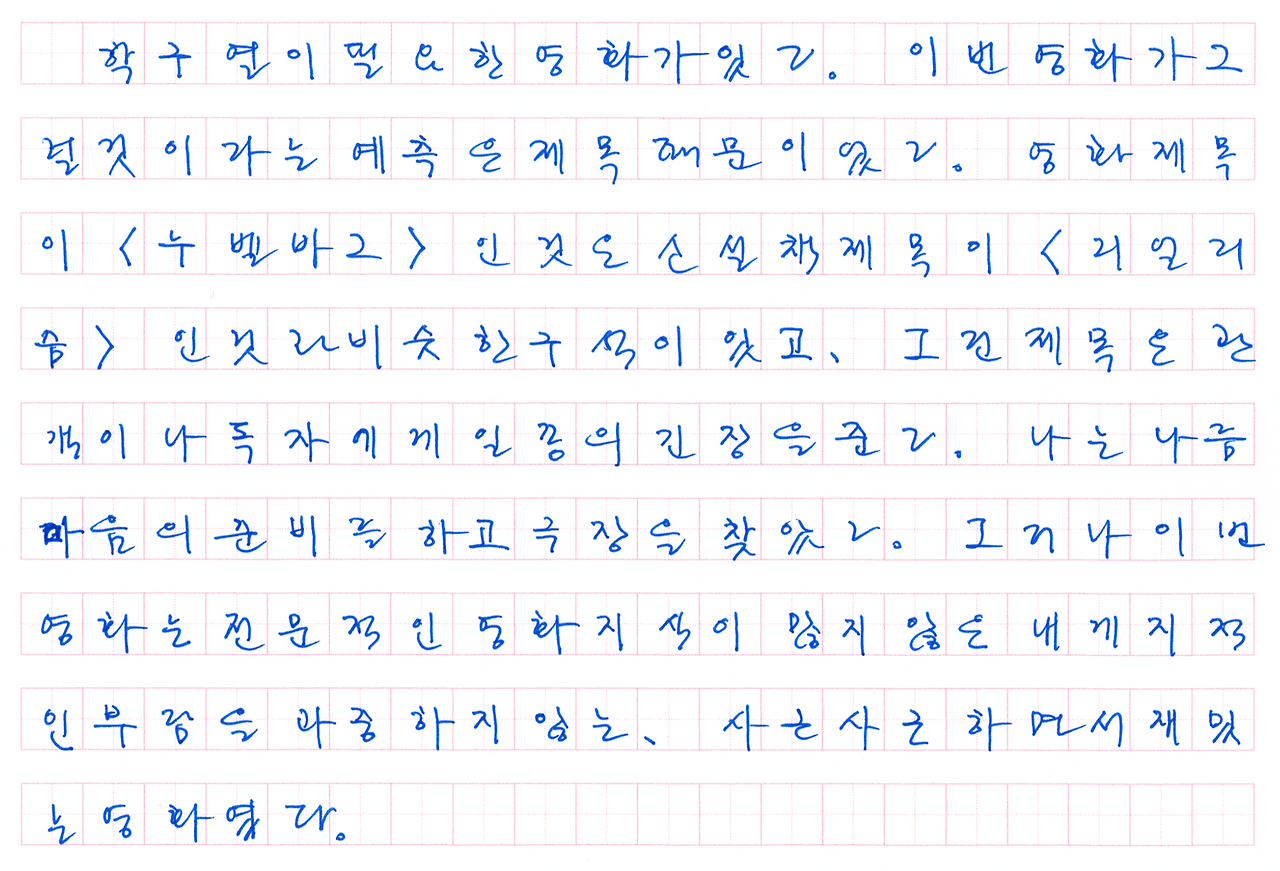 학구열이 필요한 영화가 있다. 이번 영화가 그
럴 것이라는 예측은 제목 때문이었다. 영화 제목
이 <누벨바그>인 것은 소설책 제목이 <리얼리
즘>인 것과 비슷한 구석이 있고, 그런 제목은 관
객이나 독자에게 일종의 긴장을 준다. 나는 나름
마음의 준비를 하고 극장을 찾았다. 그러나 이번
영화는 전문적인 영화 지식이 많지 않은 내게 지적
인 부담을 과중하지 않는, 사근사근하면서 재밌
는 영화였다.